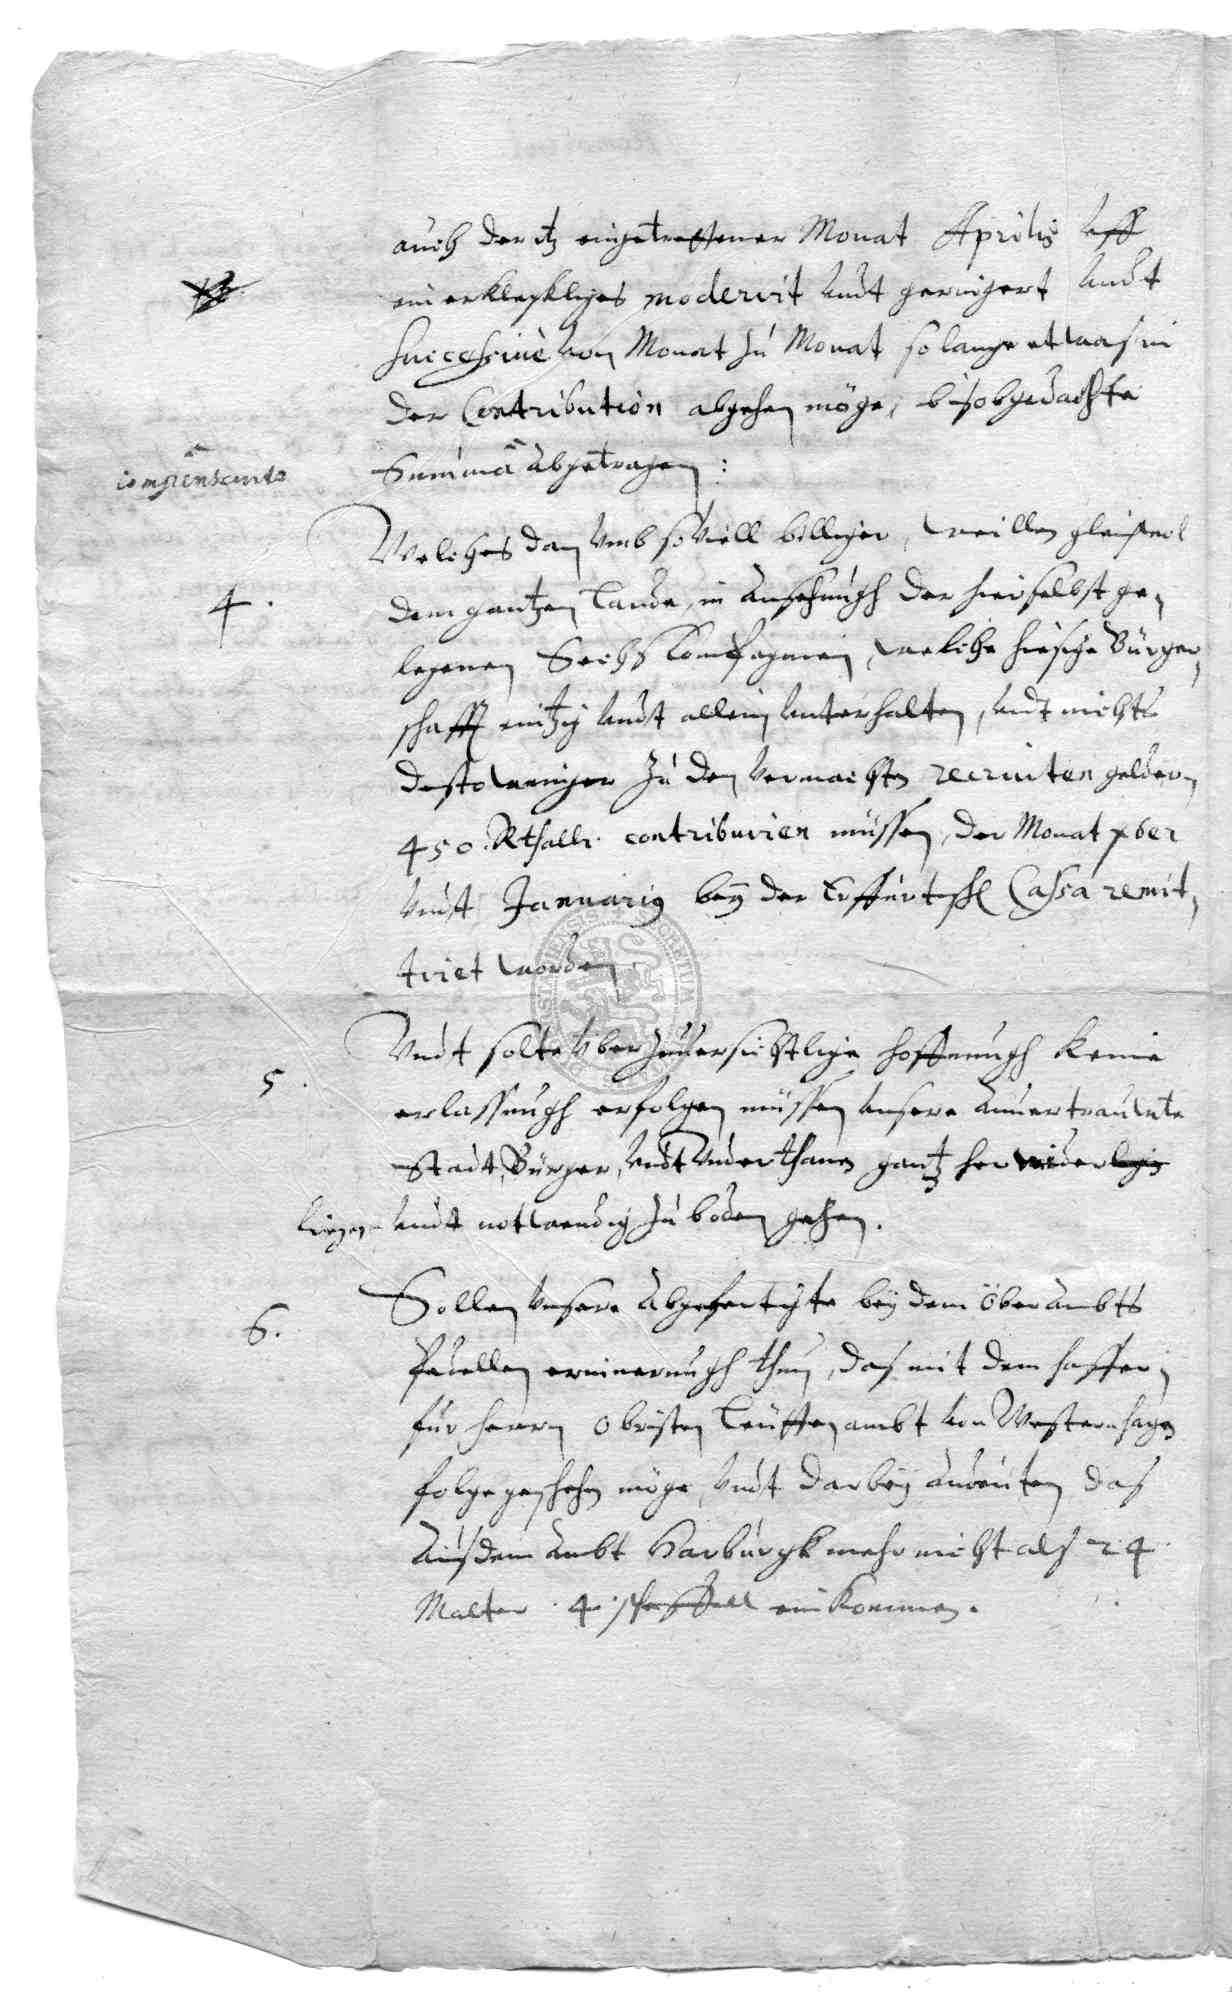 auch der itz eingetrettener Monat Aprilis uff
ein erkleckliches moderirt undt geringert undt
successivè von Monat zu Monat so lange etwas in
der Contribution abgehen möge, bis obgedachte
compensando
Summâ abgetragen:
Welches dan umb so viell billiger, weillen gleichwol
4.
dem gantzen Lande, in ansehungh der hierselbst ge-
legenen Sechs Compagnien, welche hiesige Bürger-
schafft eintzig undt allein unterhalten, undt nichts
destoweniger zu den vermachten recruiten geldern
450 Rthallr. contribuiren müssen, der Monat xber
undt Januarius bey der Erffurtisch Cassa remit-
tiret worden
5.
Undt solte uber zuversichtliche hoffnungh keine
erlassungh erfolgen müssen unsere anvertrauwete
Stadt, Bürger, undt Underthanen gantz herwider
liegen undt notwendig zu boden gehen.
6.
Sollen unsere Abgefertigte bey dem Ober Ambts
erinnerungh thun, das mit dem haffer
für herrn Obristen Leuttenambt von Westernhagen
folge geschehen möge, undt darbey andeuten das
aus dem Ambt Harburgk mehr nicht als 24
Malter 4 scheffell einkommen.